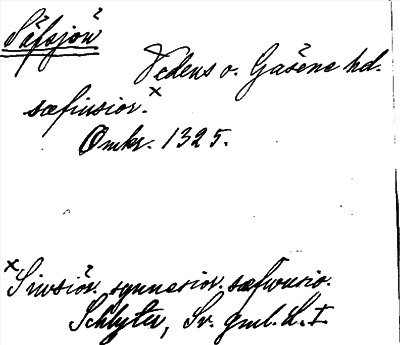 Säfsjön
Vedens o. Gäsene hd.
sæfiusior. x
Omkr. 1325.
x Siwsiör. synnesior. sæfwusio.
Schlyter, Sv. gml. L. I